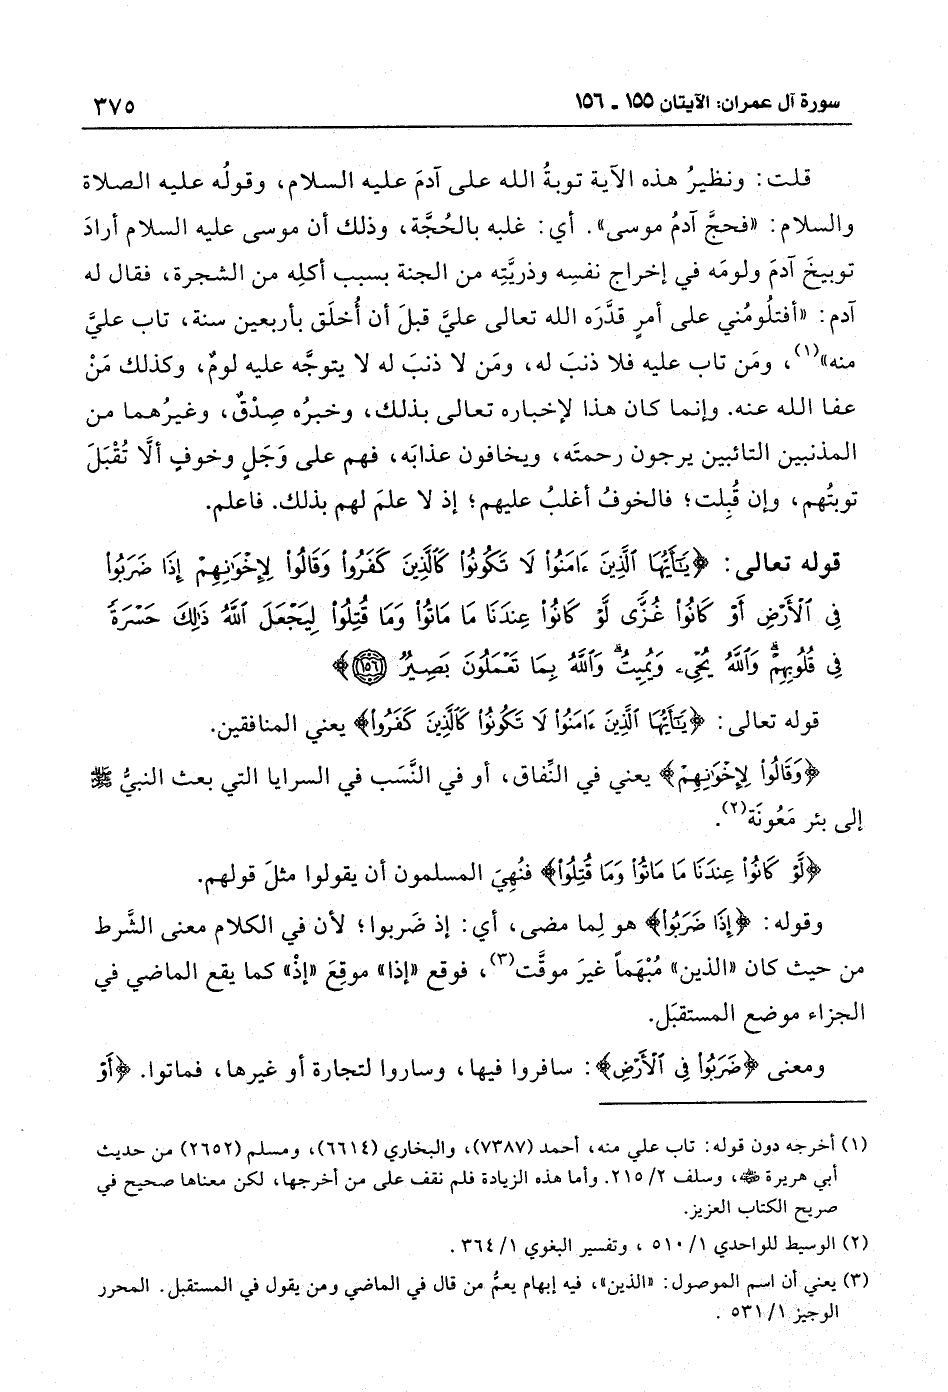 سورة آل عمران: الآيتان ١٥٥ ـ ١٥٦
٣٧٥
قلت: ونظيرُ هذه الآية توبةُ الله على آدمَ عليه السلام، وقولُه عليه الصلاة
والسلام: «فحجَّ آدمُ موسى». أي: غلبه بالحُجَّة، وذلك أن موسى عليه السلام أرادَ
توبيخَ آدمَ ولومَه في إخراج نفسِه وذريَّتِه من الجنة بسبب أكلِه من الشجرة، فقال له
آدم: «أفتلُومُني على أمرٍ قدَّرَه الله تعالى عليَّ قبلَ أن أُخلَق بأربعين سنة، تاب عليَّ
منه»(١)، ومَن تاب عليه فلا ذنبَ له، ومَن لا ذنبَ له لا يتوجَّه عليه لومٌ، وكذلك مَنْ
عفا الله عنه. وإنما كان هذا لإخباره تعالى بذلك، وخبرُه صِدْقٌ، وغيرُهما من
المذنبين التائبين يرجون رحمتَه، ويخافون عذابَه، فهم على وَجَلٍ وخوفٍ ألَّا تُقْبَلَ
توبتُهم، وإن قُبِلت؛ فالخوفُ أغلبُ عليهم؛ إذ لا علمَ لهم بذلك. فاعلم.
قوله تعالى: ﴿يَٰٓأَيُّهَا ٱلَّذِينَ ءَامَنُوا۟ لَا تَكُونُوا۟ كَٱلَّذِينَ كَفَرُوا۟ وَقَالُوا۟ لِإِخْوَٰنِهِمْ إِذَا ضَرَبُوا۟
فِى ٱلْأَرْضِ أَوْ كَانُوا۟ غُزًّى لَّوْ كَانُوا۟ عِندَنَا مَا مَاتُوا۟ وَمَا قُتِلُوا۟ لِيَجْعَلَ ٱللَّهُ ذَٰلِكَ حَسْرَةً
فِى قُلُوبِهِمْ ۗ وَٱللَّهُ يُحْىِۦ وَيُمِيتُ ۗ وَٱللَّهُ بِمَا تَعْمَلُونَ بَصِيرٌ ١٥٦﴾
قوله تعالى: ﴿يَٰٓأَيُّهَا ٱلَّذِينَ ءَامَنُوا۟ لَا تَكُونُوا۟ كَٱلَّذِينَ كَفَرُوا۟﴾ يعني المنافقين.
﴿وَقَالُوا۟ لِإِخْوَٰنِهِمْ﴾ يعني في النِّفاق، أو في النَّسَب في السرايا التي بعث النبيُّ ﷺ
إلى بئر مَعُونَة(٢).
﴿لَّوْ كَانُوا۟ عِندَنَا مَا مَاتُوا۟ وَمَا قُتِلُوا۟﴾ فنُهِيَ المسلمون أن يقولوا مثلَ قولهم.
وقوله: ﴿إِذَا ضَرَبُوا۟﴾ هو لِما مضى، أي: إذ ضَربوا؛ لأن في الكلام معنى الشَّرط
من حيث كان «الذين» مُبْهَماً غيرَ موقَّت(٣)، فوقع «إذا» موقِعَ «إذْ» كما يقع الماضي في
الجزاء موضع المستقبَل.
ومعنى ﴿ضَرَبُوا۟ فِى ٱلْأَرْضِ﴾: سافروا فيها، وساروا لتجارة أو غيرها، فماتوا. ﴿أَوْ
(١) أخرجه دون قوله: تاب علي منه، أحمد (٧٣٨٧)، والبخاري (٦٦١٤)، ومسلم (٢٦٥٢) من حديث
أبي هريرة ﷺ، وسلف ٢/ ٢١٥. وأما هذه الزيادة فلم نقف على من أخرجها، لكن معناها صحيح في
صريح الكتاب العزيز.
(٢) الوسيط للواحدي ١/ ٥١٠ ، وتفسير البغوي ١/ ٣٦٤ .
(٣) يعني أن اسم الموصول: «الذين»، فيه إبهام يعمُّ من قال في الماضي ومن يقول في المستقبل. المحرر
الوجيز ١/ ٥٣١ .